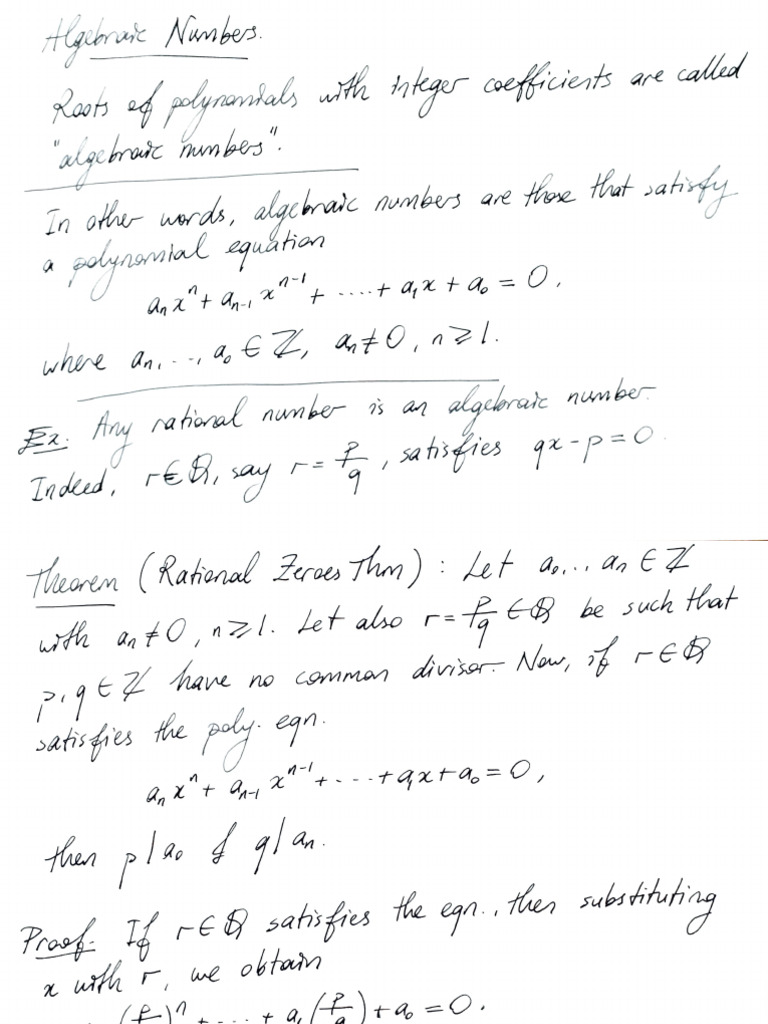 Algebraic Numbers.
Roots of polynomials with integer coefficients are called
"algebraic numbers".
In other words, algebraic numbers are those that satisfy
a polynomial equation
aₙxⁿ + aₙ₋₁xⁿ⁻¹ + ..... + a₁x + a₀ = 0,
where aₙ, ..., a₀ ∈ ℤ, aₙ ≠ 0, n ≥ 1.
Ex. Any rational number is an algebraic number.
Indeed, r ∈ ℚ, say r = p/q, satisfies qx - p = 0.
Theorem (Rational Zeroes Thm) : Let a₀, ... aₙ ∈ ℤ
with aₙ ≠ 0, n ≥ 1. Let also r = p/q ∈ ℚ be such that
p, q ∈ ℤ have no common divisor. Now, if r ∈ ℚ
satisfies the poly. eqn.
aₙxⁿ + aₙ₋₁xⁿ⁻¹ + .... + a₁x + a₀ = 0,
then p | a₀ & q | aₙ.
Proof. If r ∈ ℚ satisfies the eqn., then substituting
x with r, we obtain
(p/q)ⁿ + .... + a₁(p/q) + a₀ = 0.